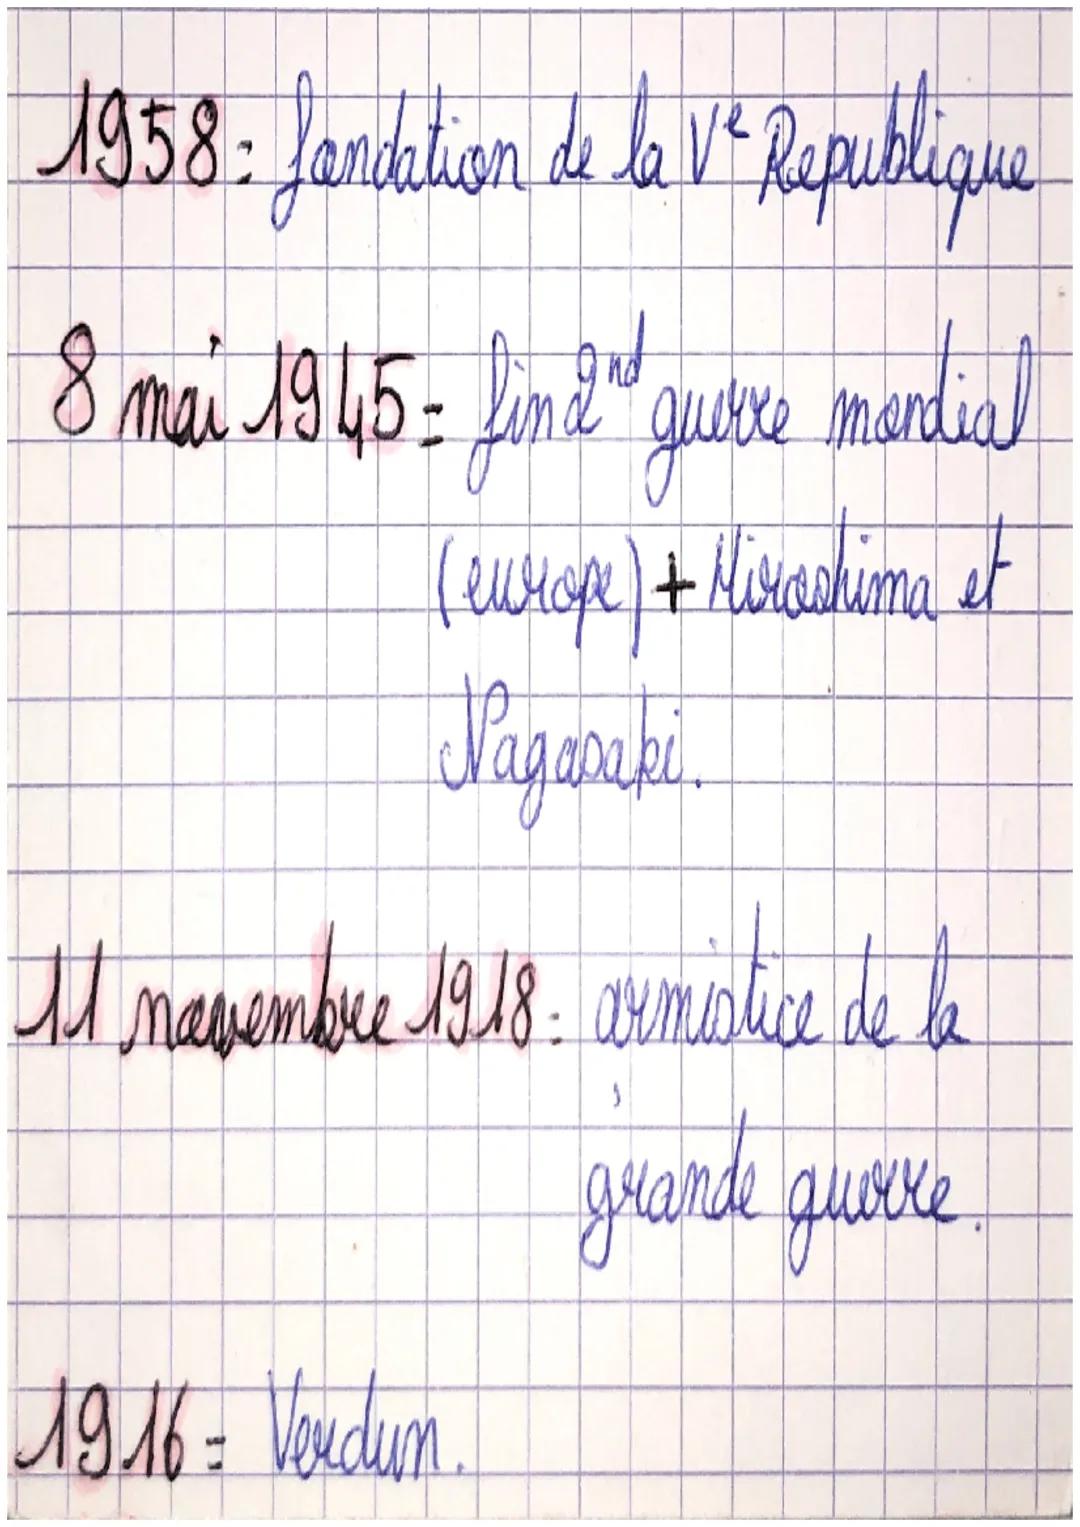 1958= fondation de la Ve Republique
8 mai 1945= fin 2nd guerre mondial
(europe) + Hiroshima et
Nagasaki.
11 novembre 1918= armistice de la
grande guerre.
1916= Verdun.